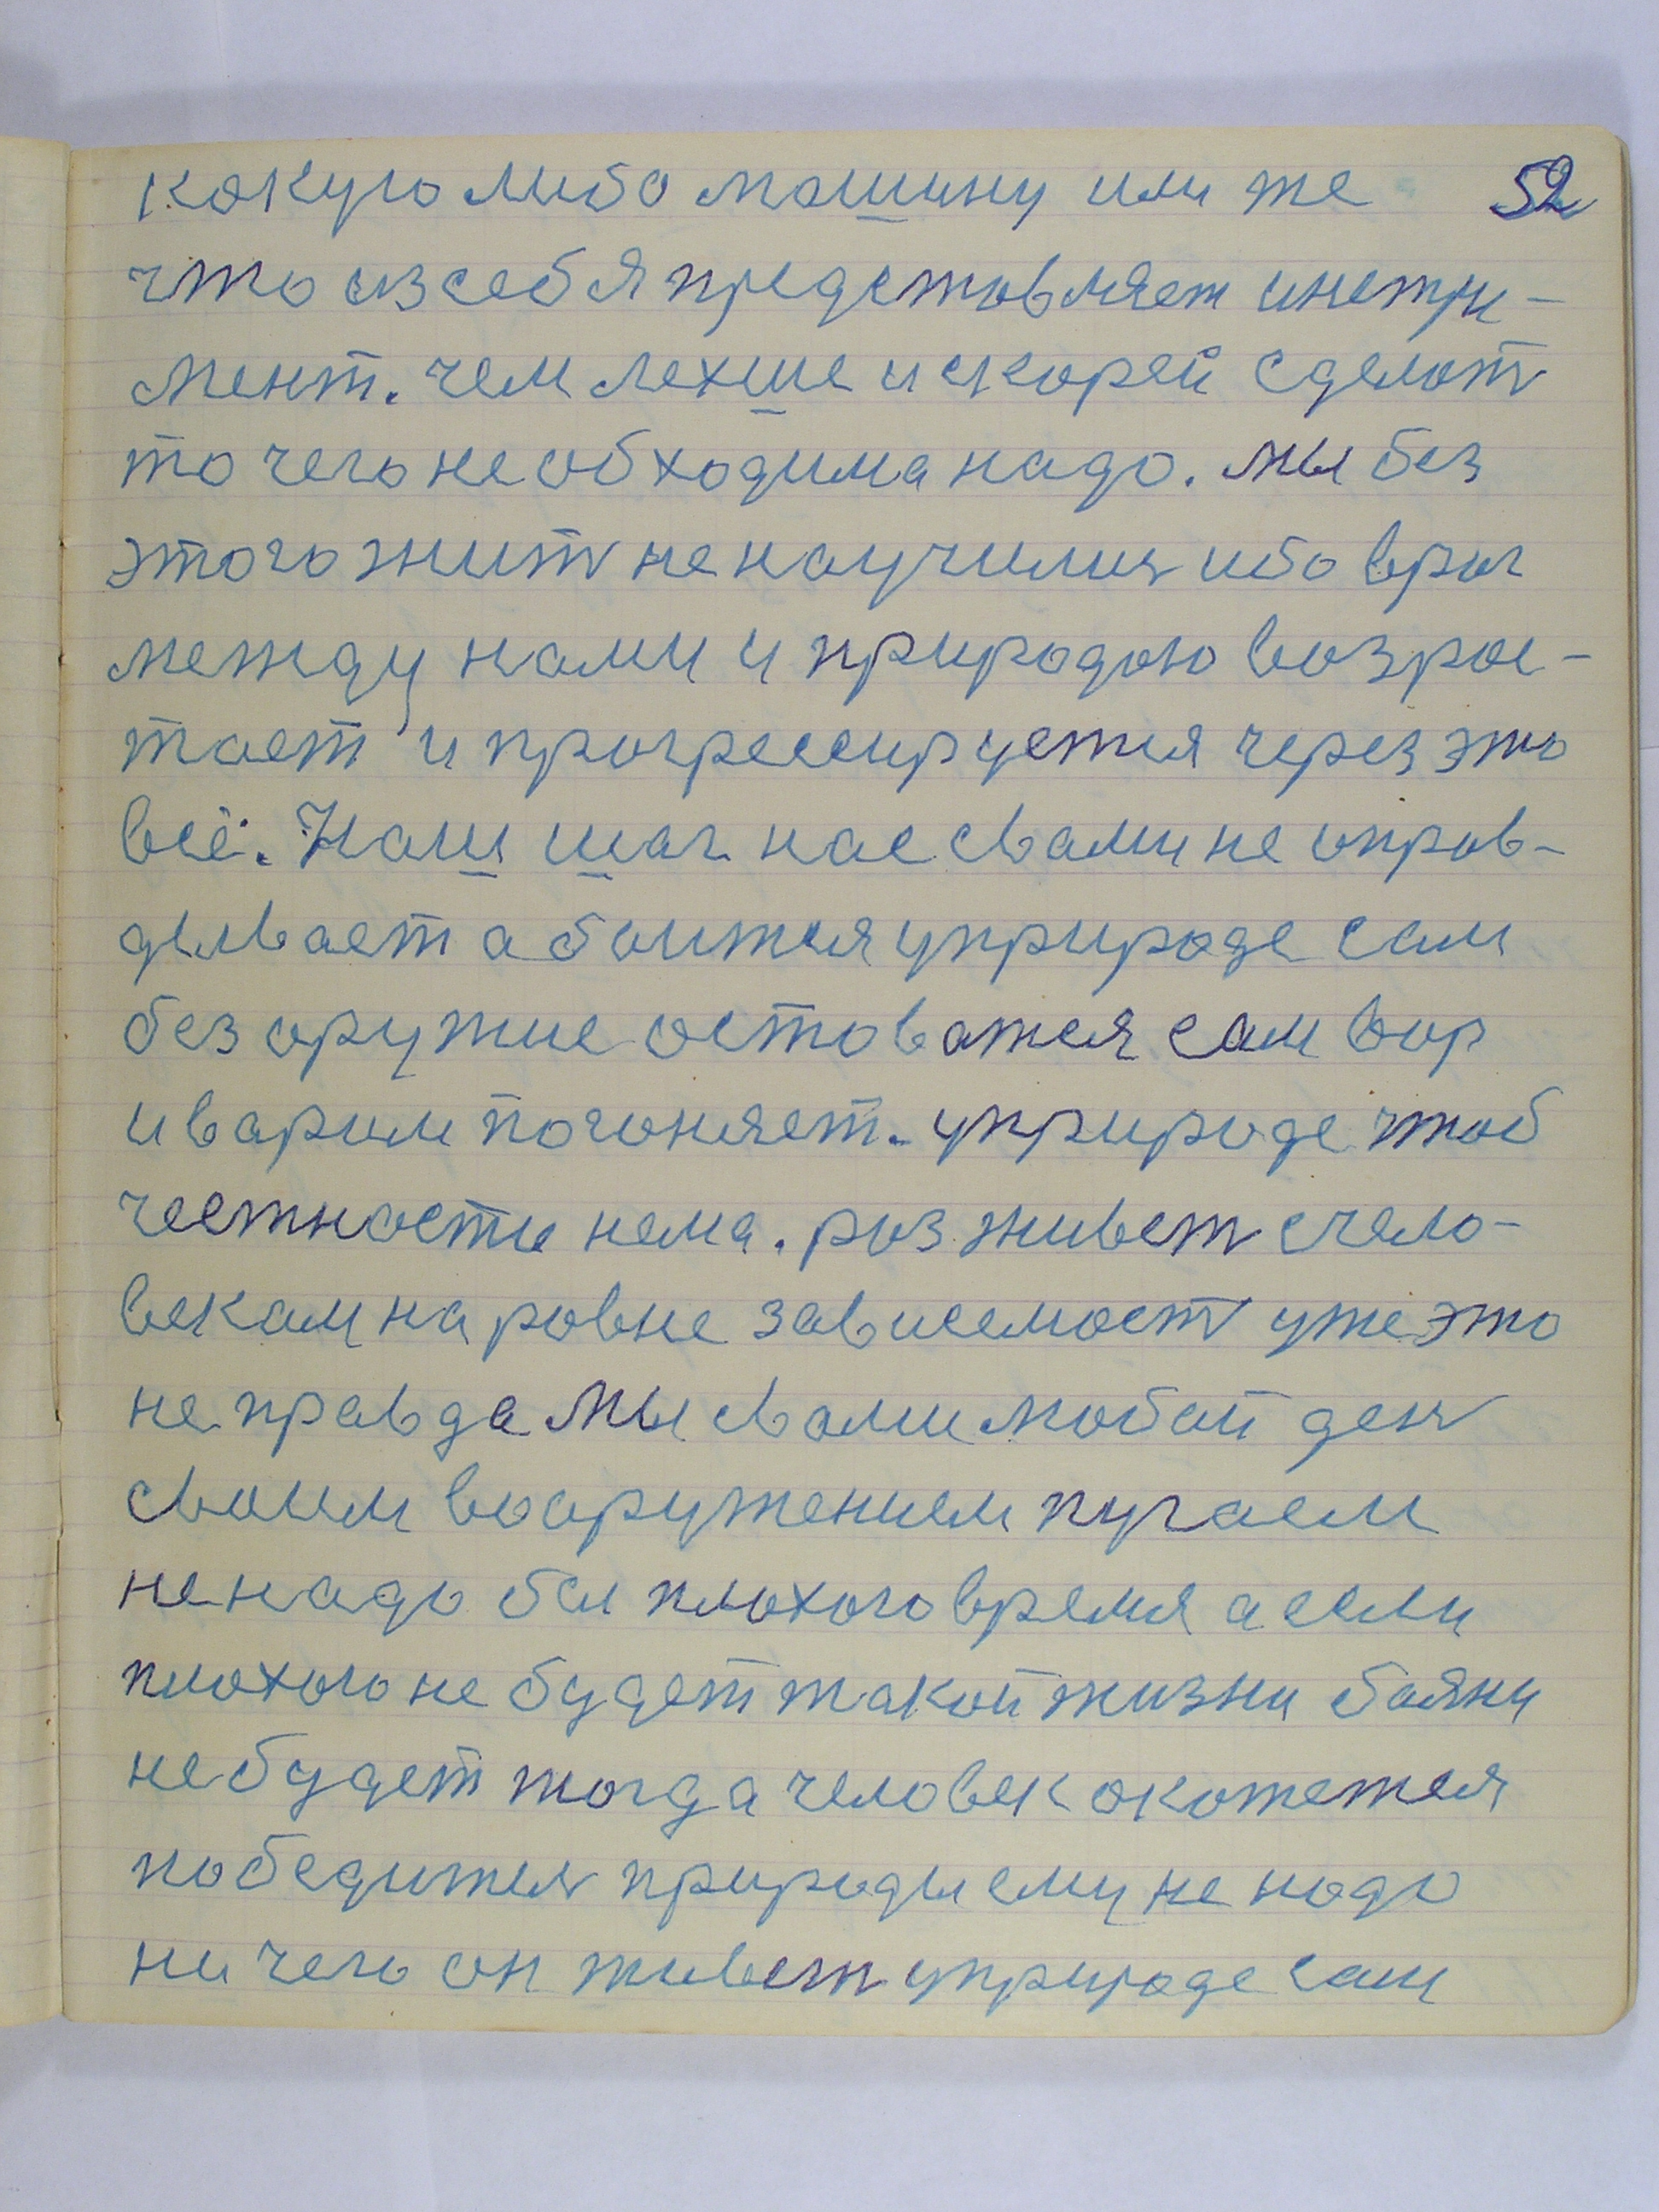 какую либо машину или же 52
что из себя представляет инстру-
мент. чем лехше и скорей сделать
то чего не обходима надо. мы без
этого жить не научились ибо враг
между нами и природою возрос-
тает и прогрессируется через это
всё. Наш шаг нас свами не оправ-
дывает а боится уприроде сам
без оружие остоватся сам вор
и варом погоняет. уприроде чтоб
честность нема. раз живет счело-
векам на ровне зависемость уже это
не правда мы свами любой день
своим вооружением пугаем
не надо бы плохого время а если
плохого не будет такой жизни баязни
не будет тогда человек окожется
победитель природы ему не надо
ни чего он живет уприроде сам